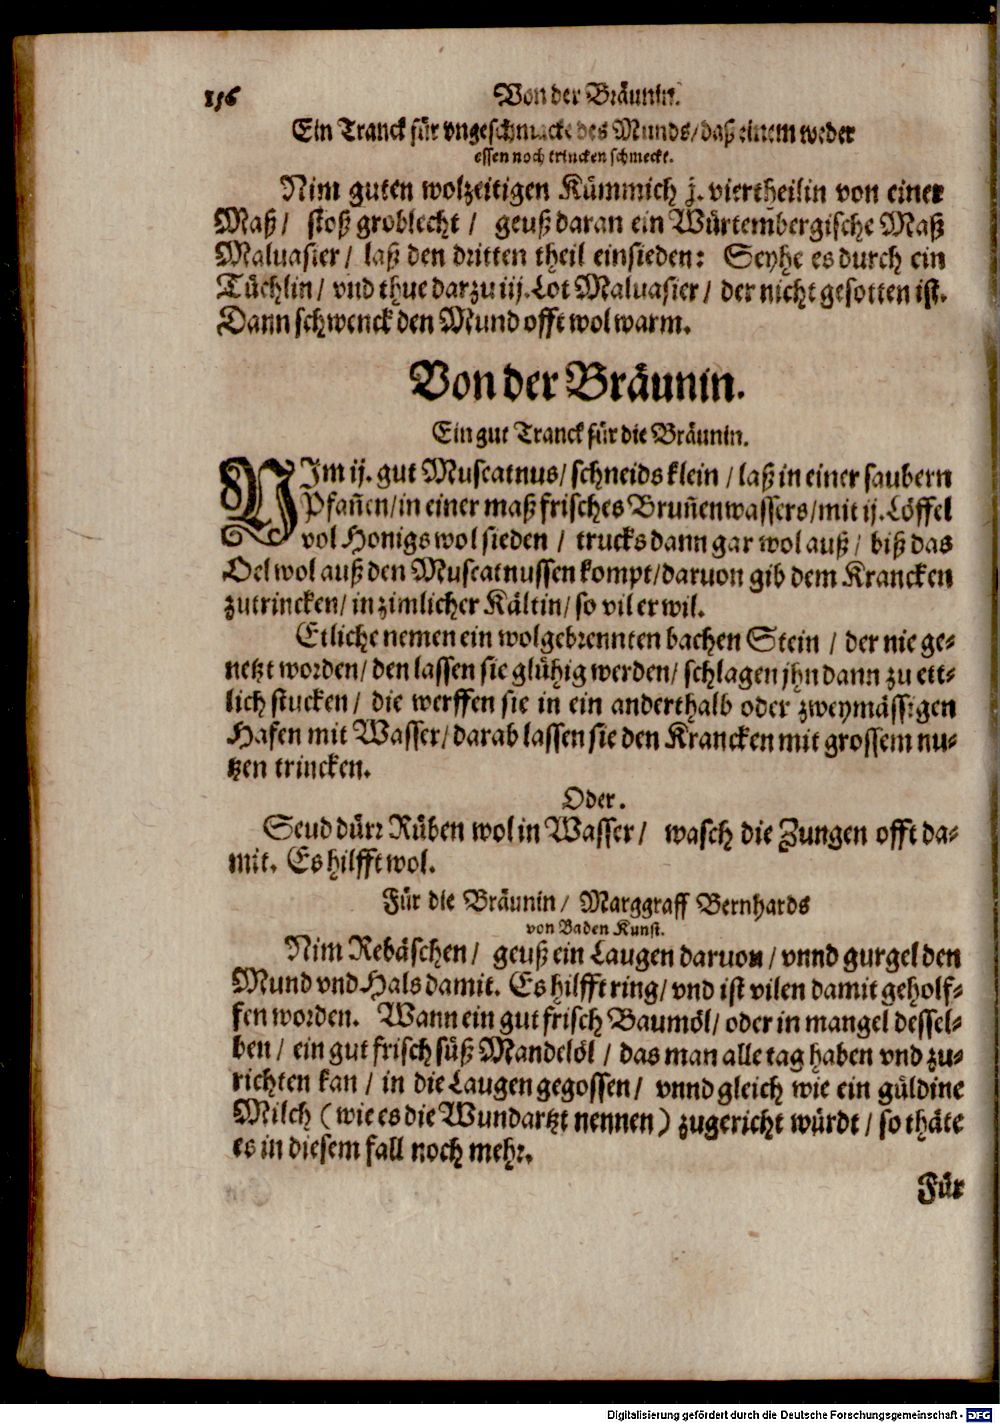 156 Von der Bräunin.
Ein Tranck für vngeschmacke des Munds/ daß einem weder
essen noch trincken schmeckt.
Nim guten wolzeitigen Kümmich j. viertheilin von einer
Maß/ stoß groblecht / geuß daran ein Würtembergische Maß
Maluasier/ laß den dritten theil einsieden: Seyhe es durch ein
Tüchlin/ vnd thue darzu iij. Lot Maluasier/ der nicht gesotten ist.
Dann schwenck den Mund offt wol warm.
Von der Bräunin.
Ein gut Tranck für die Bräunin.
NIm ij. gut Muscatnus/ schneids klein / laß in einer saubern
Pfañen/ in einer maß frisches Bruñenwassers/ mit ij. Löffel
vol Honigs wol sieden / trucks dann gar wol auß / biß das
Oel wol auß den Muscatnussen kompt/ daruon gib dem Krancken
zutrincken/ in zimlicher Kältin/ so vil er wil.
Etliche nemen ein wolgebrennten bachen Stein / der nie ge-
netzt worden/ den lassen sie glühig werden/ schlagen jhn dann zu ett-
lich stucken/ die werffen sie in ein anderthalb oder zweymässigen
Hafen mit Wasser/ darab lassen sie den Krancken mit grossem nu-
tzen trincken.
Oder.
Seud dürr Rüben wol in Wasser/ wasch die Zungen offt da-
mit. Es hilfft wol.
Für die Bräunin/ Marggraff Bernhards
von Baden Kunst.
Nim Rebäschen/ geuß ein Laugen daruon / vnnd gurgel den
Mund vnd Hals damit. Es hilfft ring/ vnd ist vilen damit geholf-
fen worden. Wann ein gut frisch Baumöl/ oder in mangel dessel-
ben / ein gut frisch süß Mandelöl / das man alle tag haben vnd zu-
richten kan / in die Laugen gegossen/ vnnd gleich wie ein güldine
Milch (wie es die Wundartzt nennen) zugericht würdt / so thäte
es in diesem fall noch mehr.
Für
Digitalisierung gefördert durch die Deutsche Forschungsgemeinschaft - DFG